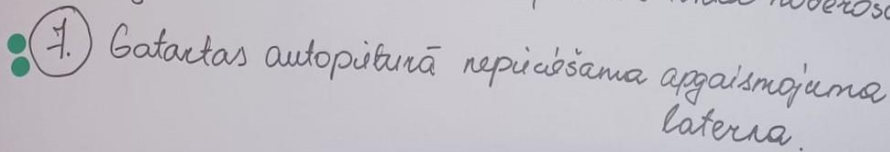 7. Gatartas autopieturā nepieciešama apgaismojuma
laterna.